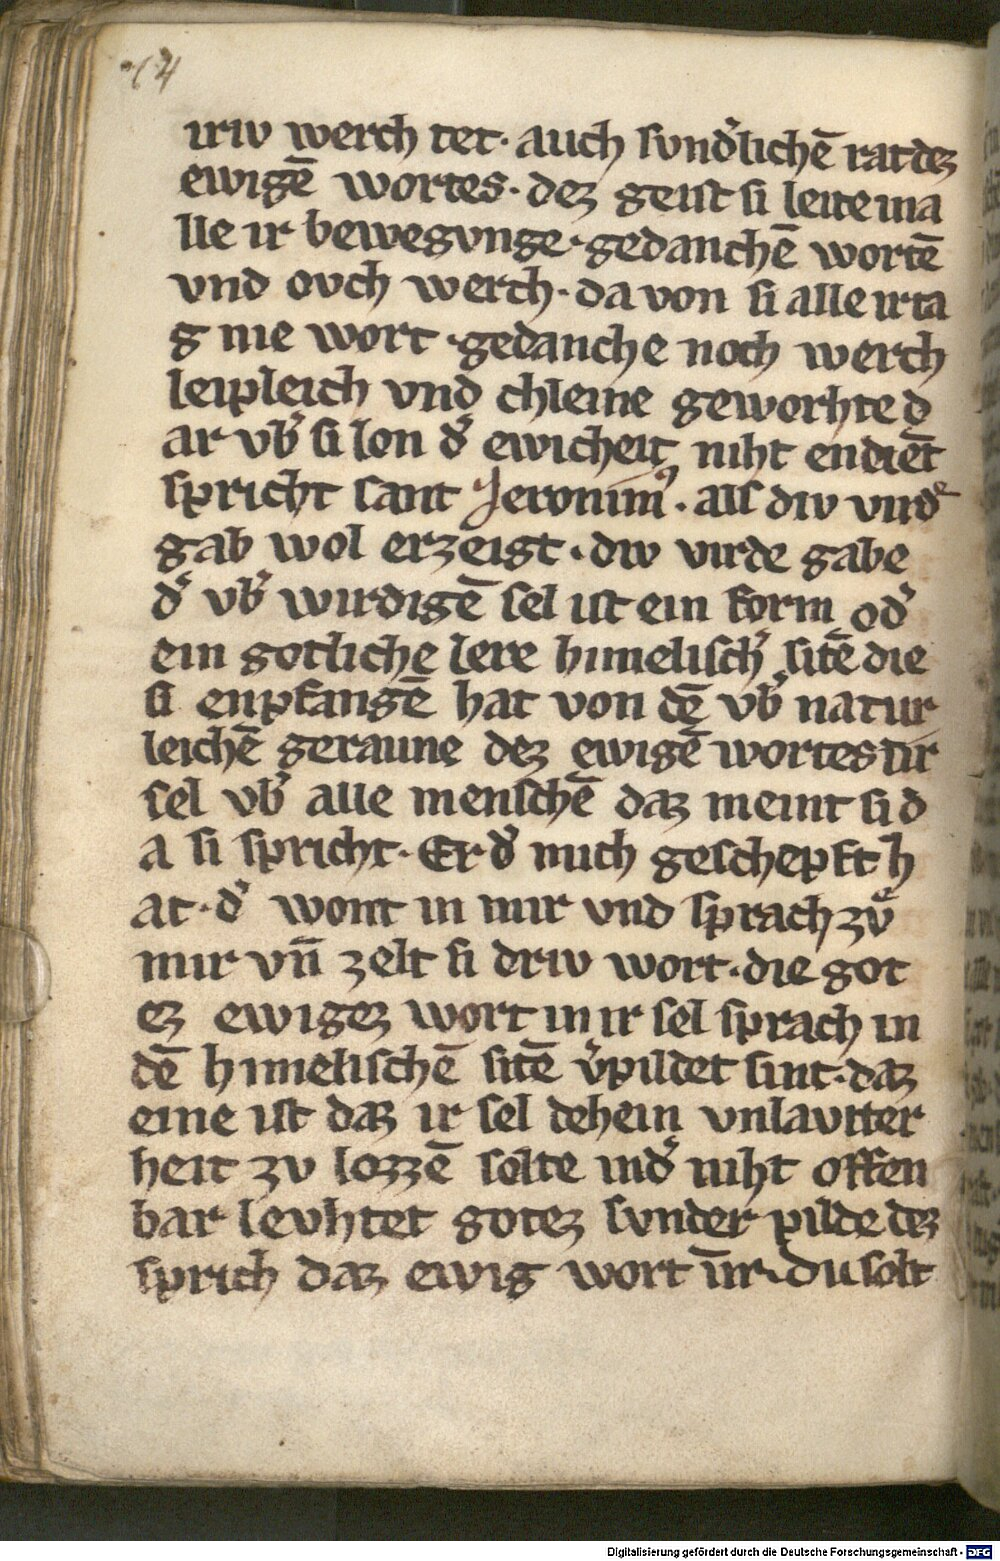 64
iriv werch tet · auch svnd'lichē rat dez
ewigē wortes · dez geist si leite in a
lle ir bewegvnge · gedanchē wortē
vnd ovch werch · da von si alle ir ta
g nie wort · gedanche noch werch
leipleich vnd chleine geworhte d
ar vb' si lon d' ewicheit niht endiēt
spricht sant Jeronim9 · als div vird
gab wol erzeigt · div virde gabe
d' vb' wirdigē sel ist ein form od'
ein gotliche lere himelisch' sitē die
si enpfangē hat von dē vb' natur
leichē geraune dez ewigē wortes dir
sel vb' alle menschē daz meint si d
a si spricht · Er d' mich geschepft h
at · d' wont in mir vnd sprach zvͤ
mir vn̄ zelt si driv wort · die got
ez ewigez wort in ir sel sprach in
dē himelischē sitē v'pildet sint · daz
eine ist daz ir sel dehein vnlavtter
heit zv lozzē solte in d' niht offen
bar levhtet gotez svnder pilde dez
sprich daz ewig wort in̄ ir · du solt
Digitalisierung gefördert durch die Deutsche Forschungsgemeinschaft - DFG